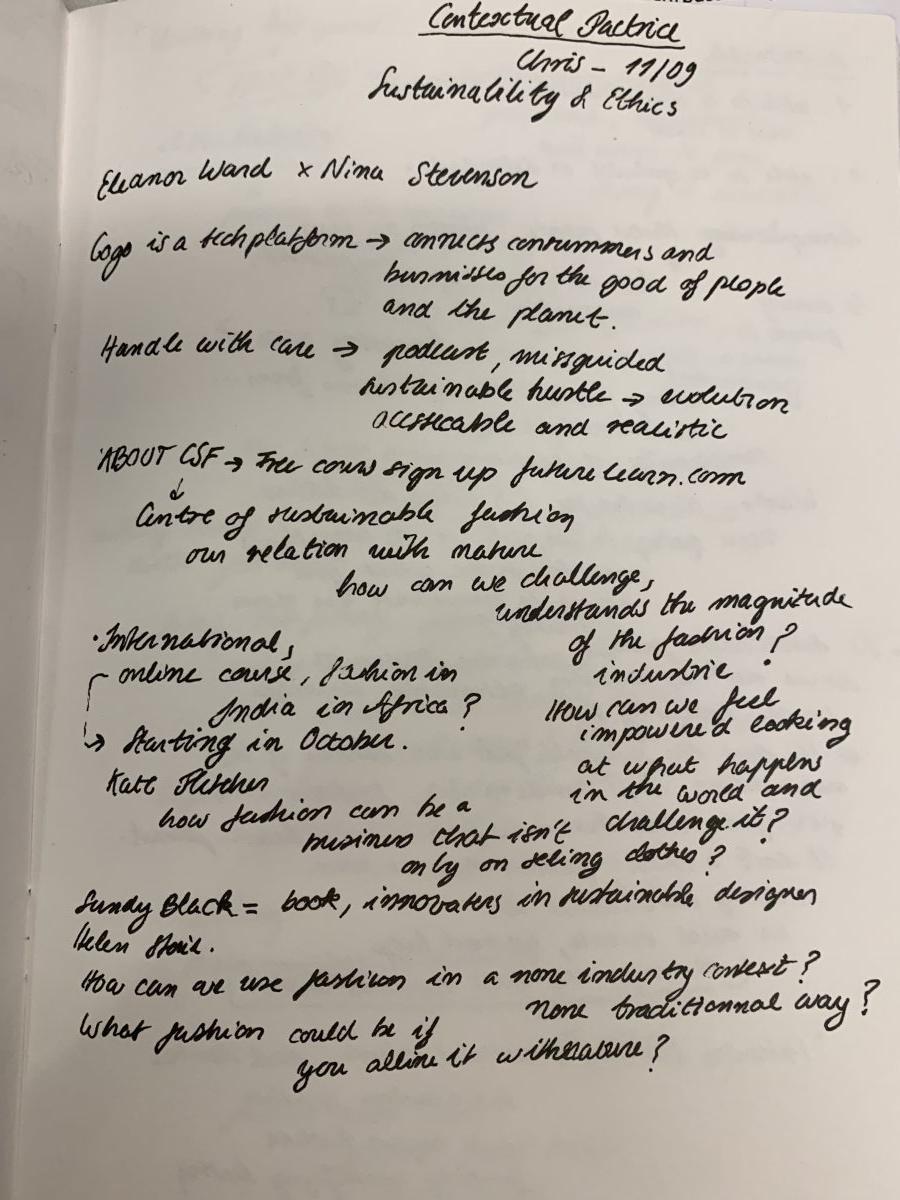 Contextual Pactrice
Chris - 11/09
Sustainalility & Ethics
Eleanor Ward x Nina Stevenson
Cogo is a tech platform → connects consummers and
businisses for the good of people
and the planet.
Handle with care → podcast, missguided
sustainable hustle → evolution
acssecable and realistic
ABOUT CSF → Free cours sign up future learn.com
↓
Centre of sustainable fashion
our relation with nature
how can we challenge,
understands the magnitude
of the fashion ?
industrie
• International,
online course, fashion in
India in Africa ?
↳ Starting in October.
How can we feel
impowered looking
at what happens
in the world and
challenge it ?
Kate Fletcher
how fashion can be a
business that isn't
only on seling clothes ?
Sandy Black = book, innovaters in sustainable designer
Helen
How can we use fashion in a none industry context ?
none traditionnal way ?
What fashion could be if
you alline it with nature ?